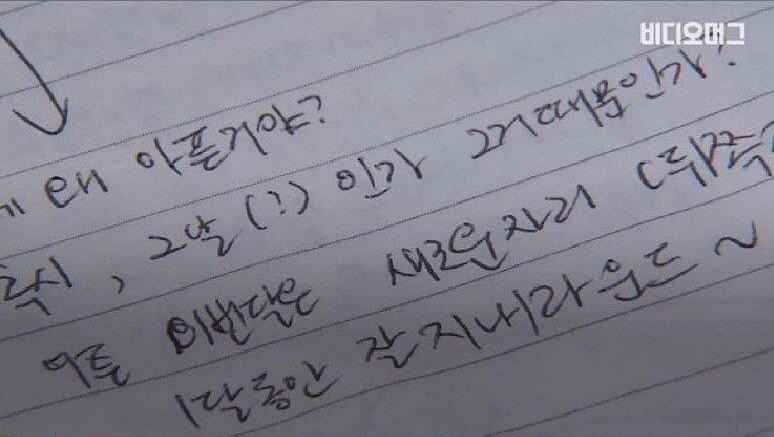 비디오머그
왜 아픈거야?
혹시, 그날(!)인가 그거때문인가?
이번달은 새로운자리 (뒤쪽
1달동안 잘지내라운드~